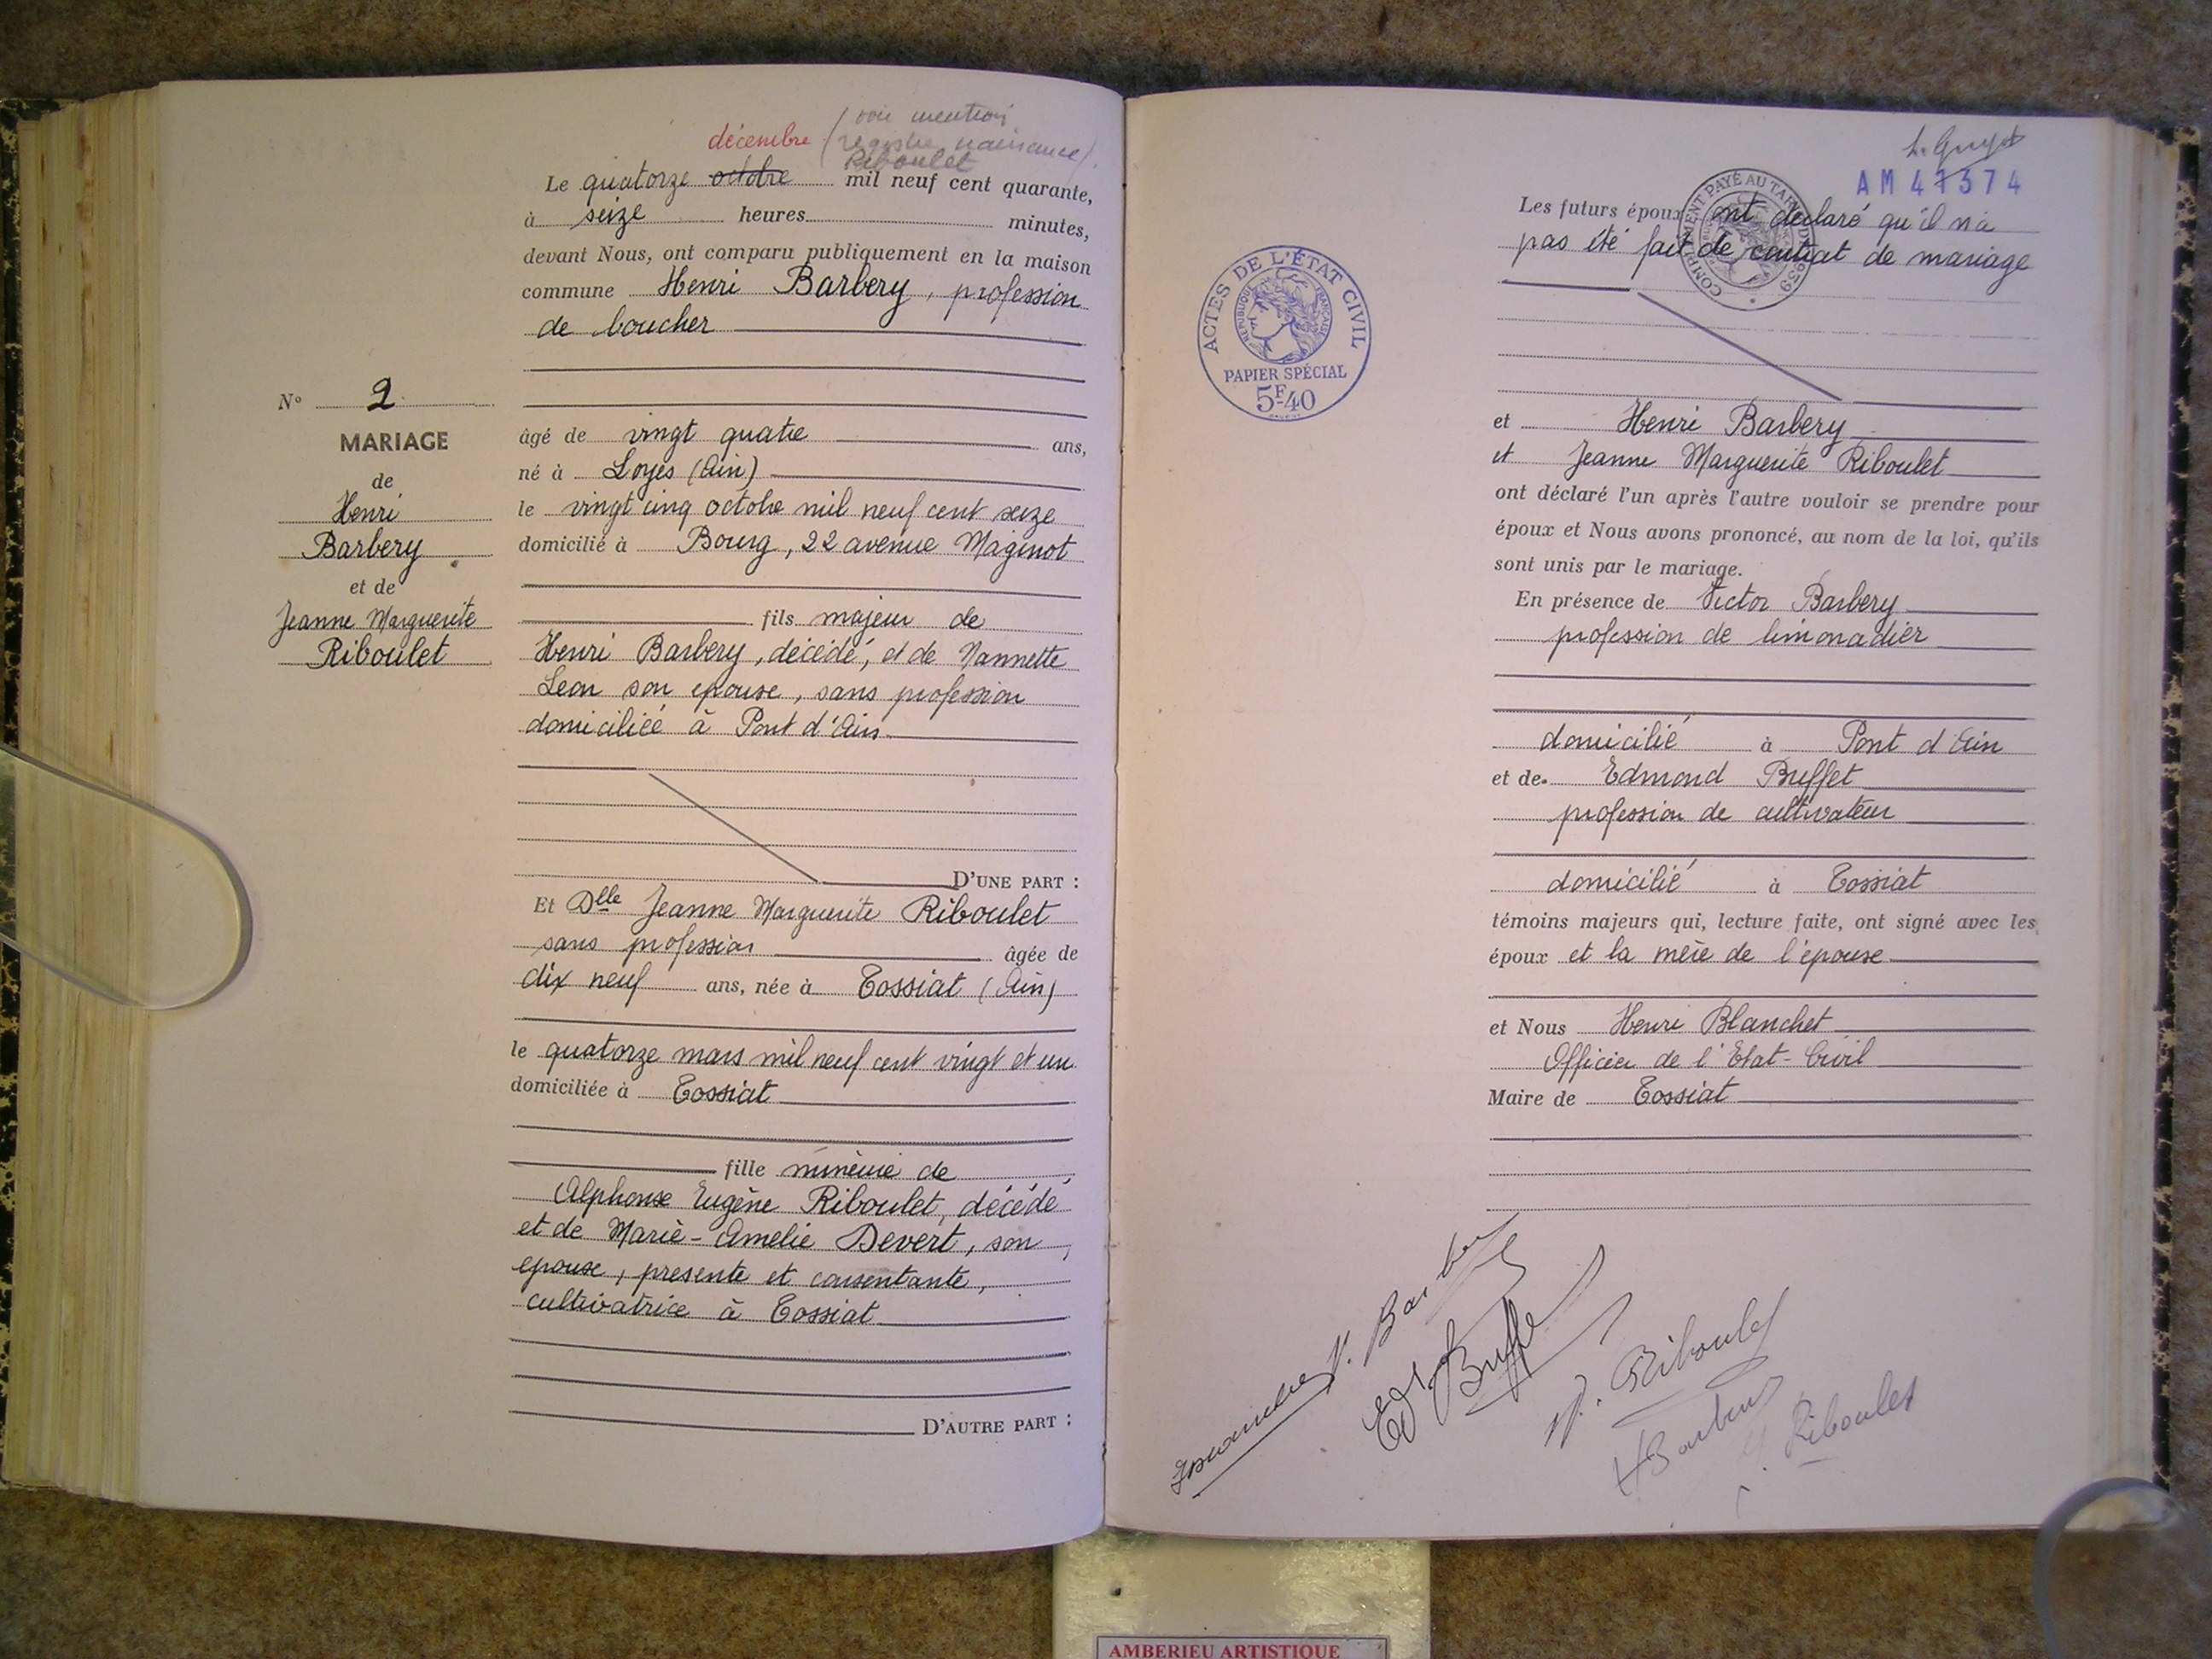 décembre (voir mention
registre naissance)
Riboulet
Le quatorze octobre mil neuf cent quarante,
à seize heures minutes,
devant Nous, ont comparu publiquement en la maison
commune Henri Barbery, profession
de boucher
N° 2
MARIAGE
de
Henri
Barbery
et de
Jeanne Marguerite
Riboulet
âgé de vingt quatre ans,
né à Loyes (Ain)
le vingt cinq octobre mil neuf cent seize
domicilié à Bourg, 22 avenue Maginot
fils majeur de
Henri Barbery, décédé, et de Nannette
Leon son epouse, sans profession
domiciliée à Pont d'Ain
D'UNE PART :
Et Dlle Jeanne Marguerite Riboulet
sans profession âgée de
dix neuf ans, née à Tossiat (Ain)
le quatorze mars mil neuf cent vingt et un
domiciliée à Tossiat
fille mineure de
Alphonse Eugène Riboulet, décédé
et de Marie-Amelie Devert, son
epouse, presente et consentante,
cultivatrice à Tossiat
D'AUTRE PART :
AM 41374
COMPLEMENT PAYÉ AU TARIF DE 1939
Les futurs époux ont déclaré qu'il n'a
pas été fait de contrat de mariage
ACTES DE L'ÉTAT CIVIL
REPUBLIQUE FRANÇAISE
PAPIER SPÉCIAL
5F-40
et Henri Barbery
et Jeanne Marguerite Riboulet
ont déclaré l'un après l'autre vouloir se prendre pour
époux et Nous avons prononcé, au nom de la loi, qu'ils
sont unis par le mariage.
En présence de Victor Barbery
profession de limonadier
domicilié à Pont d'Ain
et de Edmond Buffet
profession de cultivateur
domicilié à Tossiat
témoins majeurs qui, lecture faite, ont signé avec les
époux et la mère de l'épouse
et Nous Henri Blanchet
Officier de l'Etat-Civil
Maire de Tossiat
V. Barbery
Ed Buffet
Riboulet
HBarbery
Riboulet
AMBERIEU ARTISTIQUE